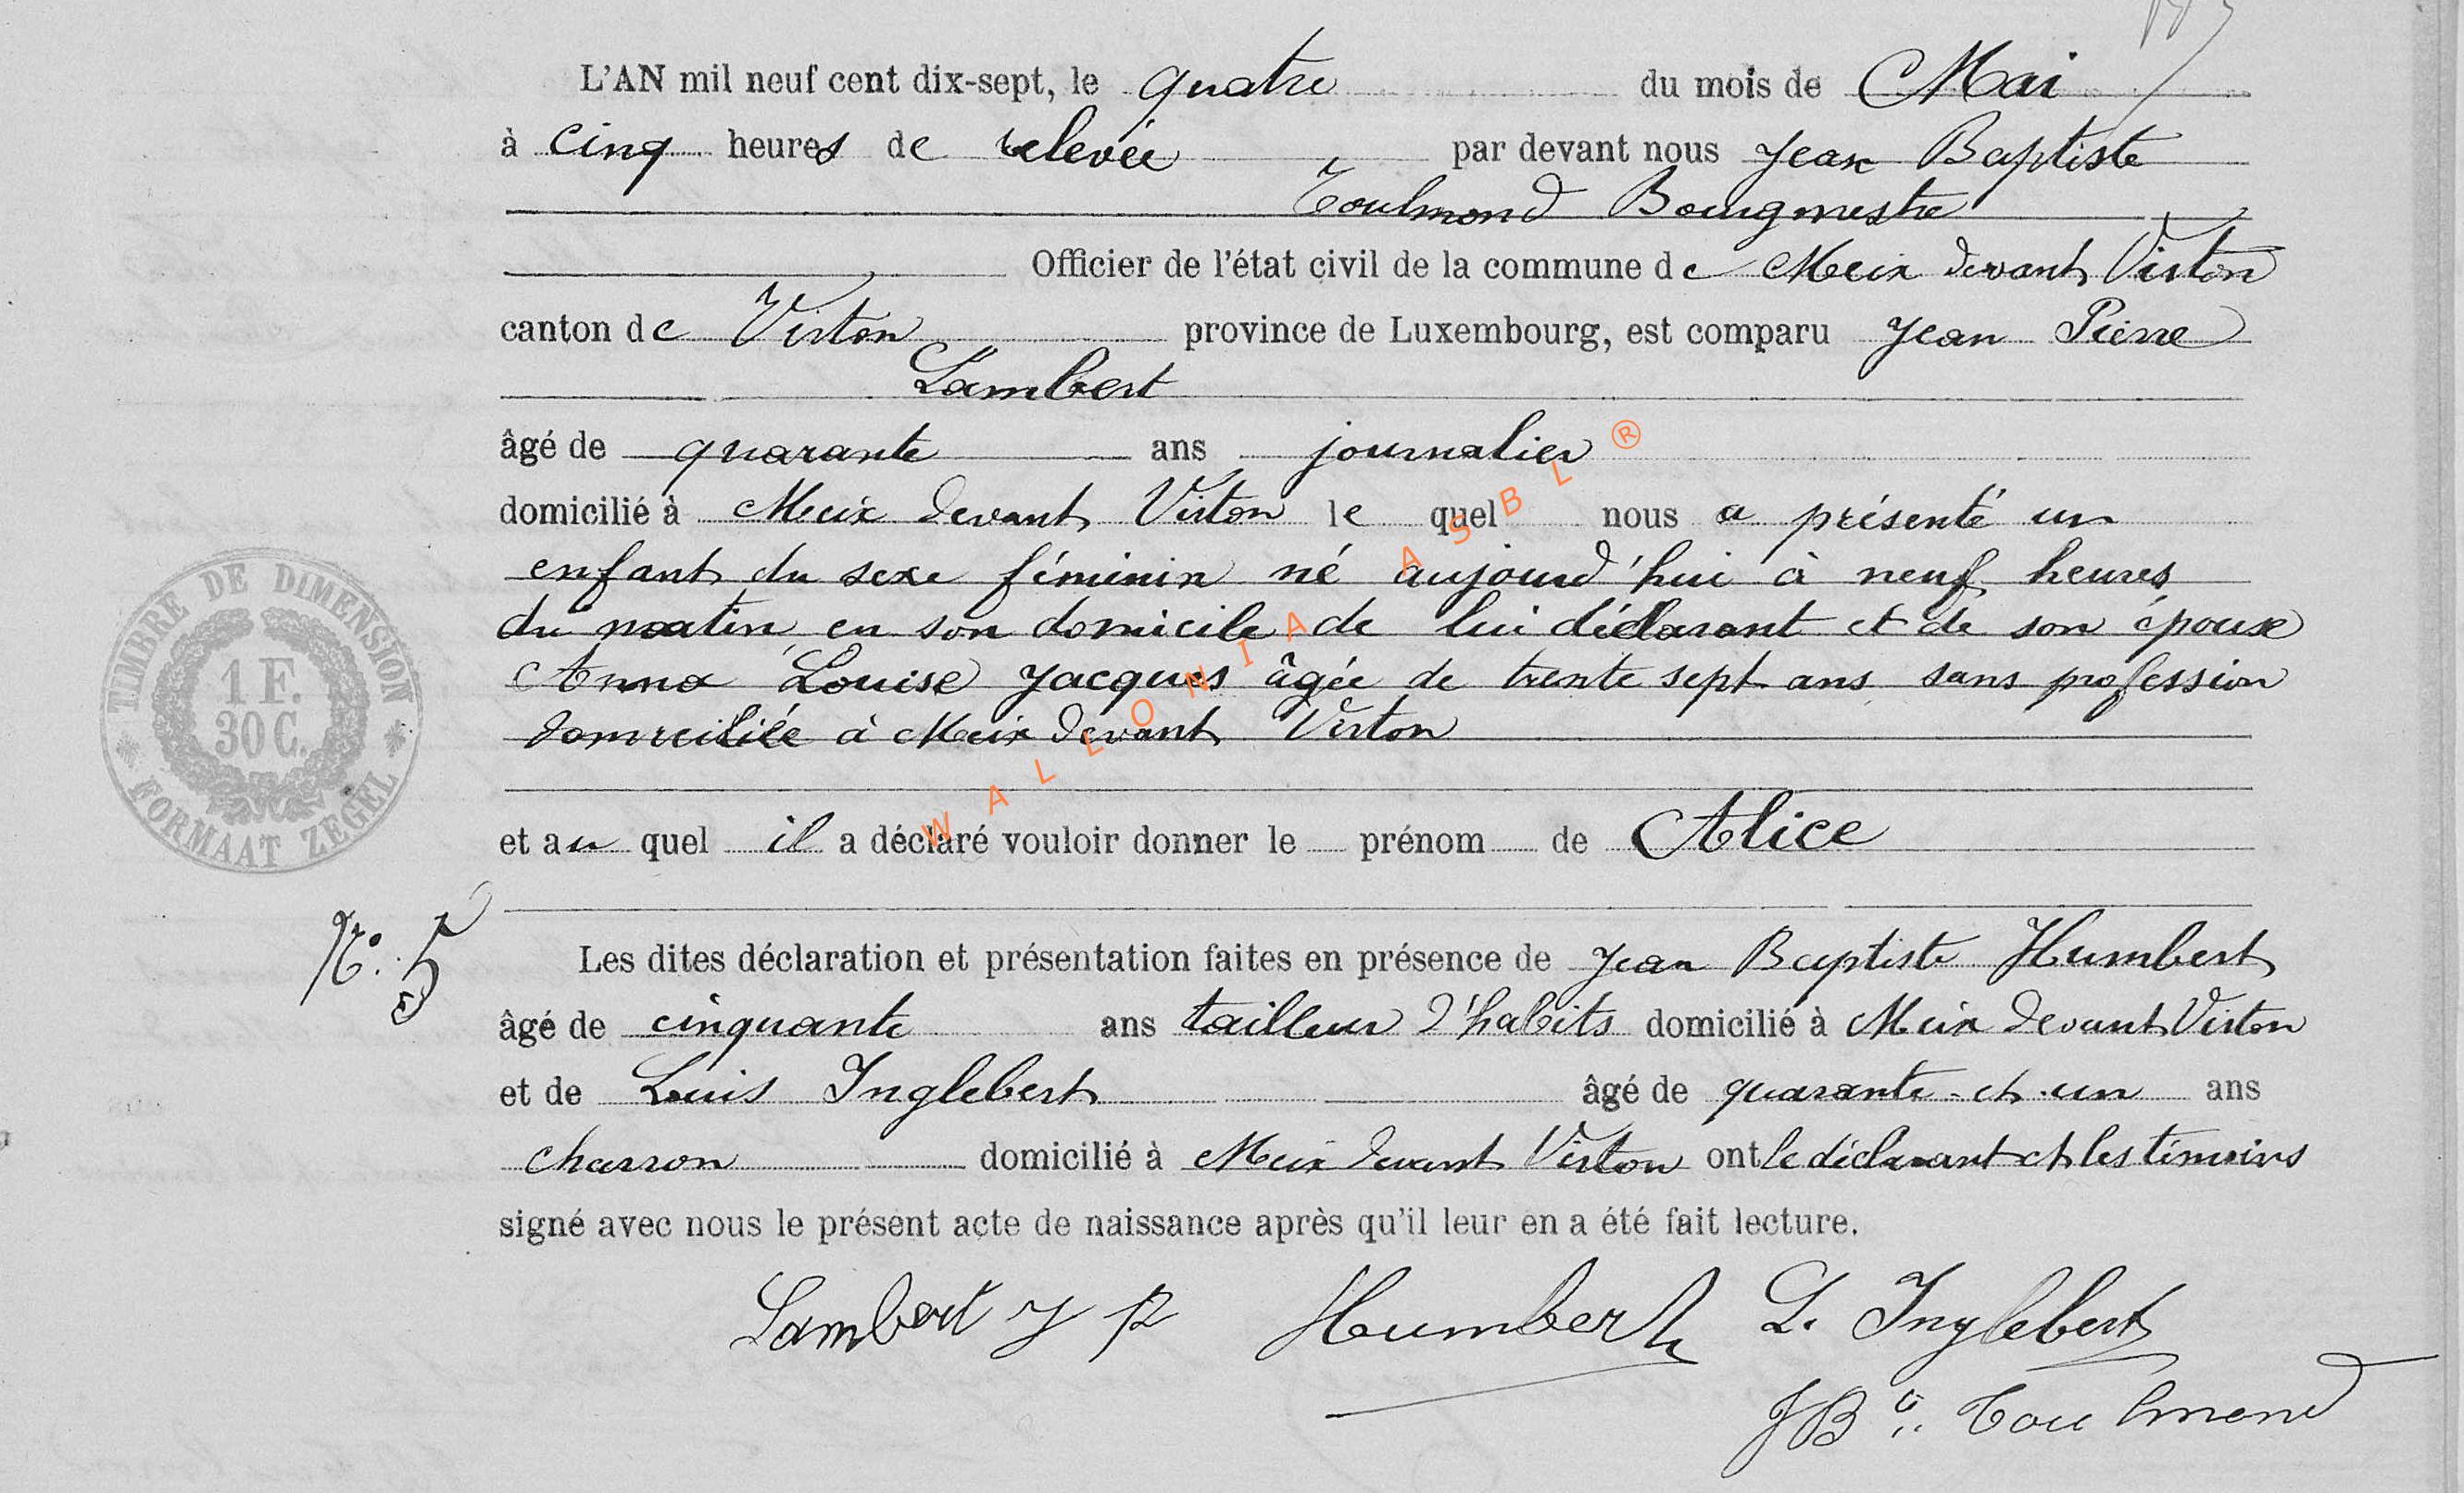 L'AN mil neuf cent dix-sept, le quatre du mois de Mai
à cinq heures de relevée par devant nous Jean Baptiste
Toulmond Bourgmestre
Officier de l'état civil de la commune de Meix devant Virton
canton de Virton province de Luxembourg, est comparu Jean Pierre
Lambert
âgé de quarante ans journalier
domicilié à Meix devant Virton le quel nous a présenté un
enfant du sexe féminin né aujourd'hui à neuf heures
du matin en son domicile de lui déclarant et de son épouse
Anna Louise Jacques âgée de trente sept ans sans profession
domiciliée à Meix devant Virton
et au quel il a déclaré vouloir donner le prénom de Alice
Les dites déclaration et présentation faites en présence de Jean Baptiste Humbert
âgé de cinquante ans tailleur d'habits domicilié à Meix devant Virton
et de Louis Inglebert âgé de quarante-et-un ans
charron domicilié à Meix devant Virton ont le déclarant et les témoins
signé avec nous le présent acte de naissance après qu'il leur en a été fait lecture.
Lambert J P Humbert L. Inglebert
JBte Toulmond
TIMBRE DE DIMENSION
1 F.
30 C.
FORMAAT ZEGEL
No. 5
WALLONIA ASBL ®